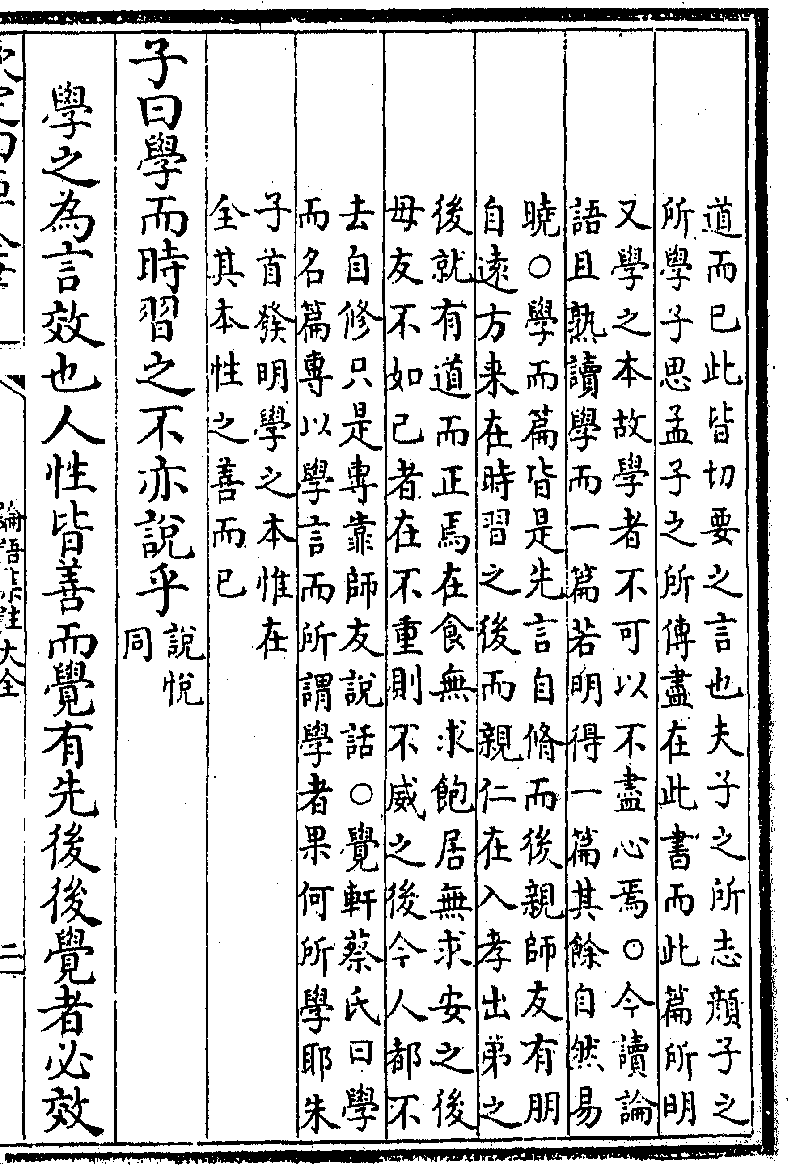 道而已此皆切要之言也夫子之所志顏子之
所學子思孟子之所傳盡在此書而此篇所明
又學之本故學者不可以不盡心焉○今讀論
語且熟讀學而一篇若明得一篇其餘自然易
曉○學而篇皆是先言自脩而後親師友有朋
自逺方来在時習之後而親仁在入孝出弟之
後就有道而正焉在食無求飽居無求安之後
毋友不如己者在不重則不威之後今人都不
去自修只是專靠師友說話○覺軒蔡氏曰學
而名篇專以學言而所謂學者果何所學耶朱
子首發明學之本惟在
全其本性之善而已
子曰學而時習之不亦說乎
說悅
同
學之為言效也人性皆善而覺有先後後覺者必效
論語集註大全
二